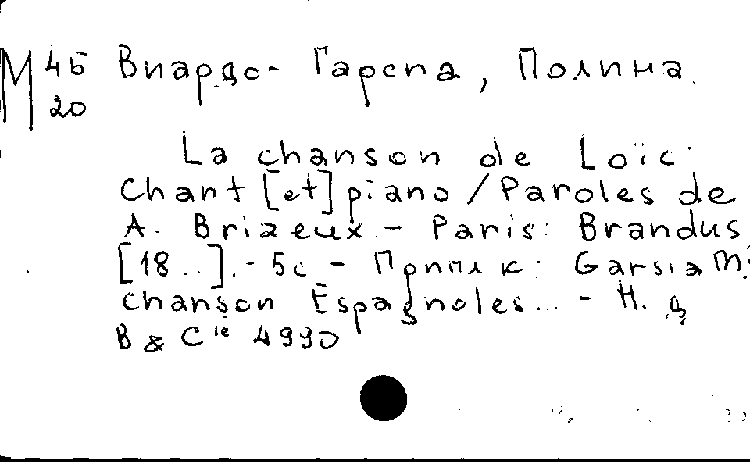 М 45 Виардо-Гарсиа, Полина.
20
La chanson de Loïc.
Chant [et] piano / Paroles de
A. Brizeux - Paris: Brandus
[18..]. - 5с - Припл к: Garsia M:
Chanson Espagnoles... - Н. д
B & Cie 4990